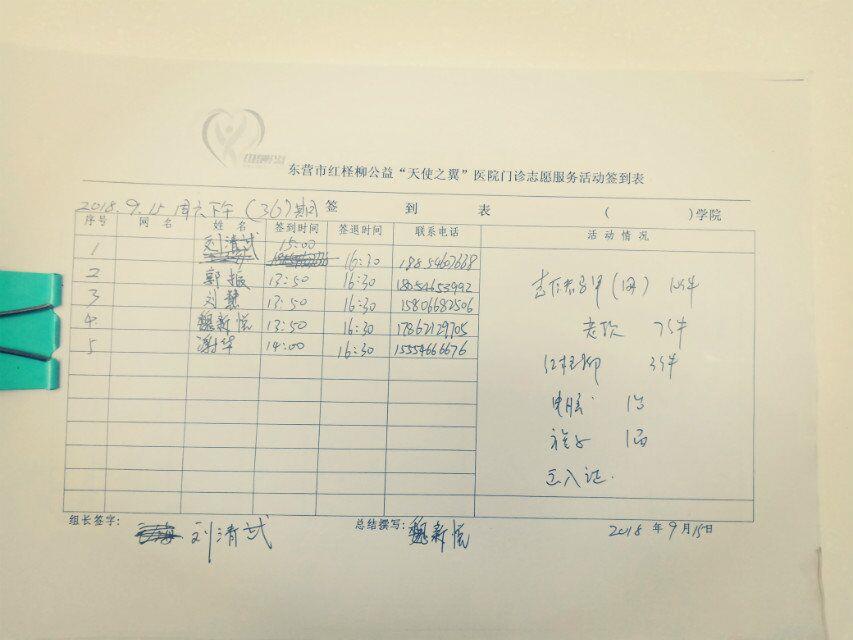 东营市红柽柳公益“天使之翼”医院门诊志愿服务活动签到表
2018.9.15 周六下午 (36)期 签 到 表 ( )学院
序号 网 名 姓 名 签到时间 签退时间 联系电话 活 动 情 况
1 刘清武 15:00 16:30
2 郭振 13:50 16:30 18054653992
3 刘慧 13:50 16:30 15806682506
4 魏新悦 13:50 16:30 17862129705
5 谢华 14:00 16:30 15554666676
红柽柳 3件
电脑 1台
1面
出入证
组长签字: 刘清武 总结撰写: 魏新悦 2018 年 9 月 15 日